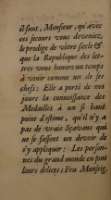 il soit, Monsieur, qui avec
ces secours vous deveniez
le prodige de vôtre siecle &
que la Republique des let-
tres vous honore un temps
à venir comme un de ses
chefs: Elle a porté de nos
jours la connoissance des
Medailles à un si haut
point d'estime, qu'il n'y a
pas de vrais Sçavans qui
ne se fassent un devoir de
s'y appliquer: Les person-
nes du grand monde en font
leurs delices; Feu Monsieg